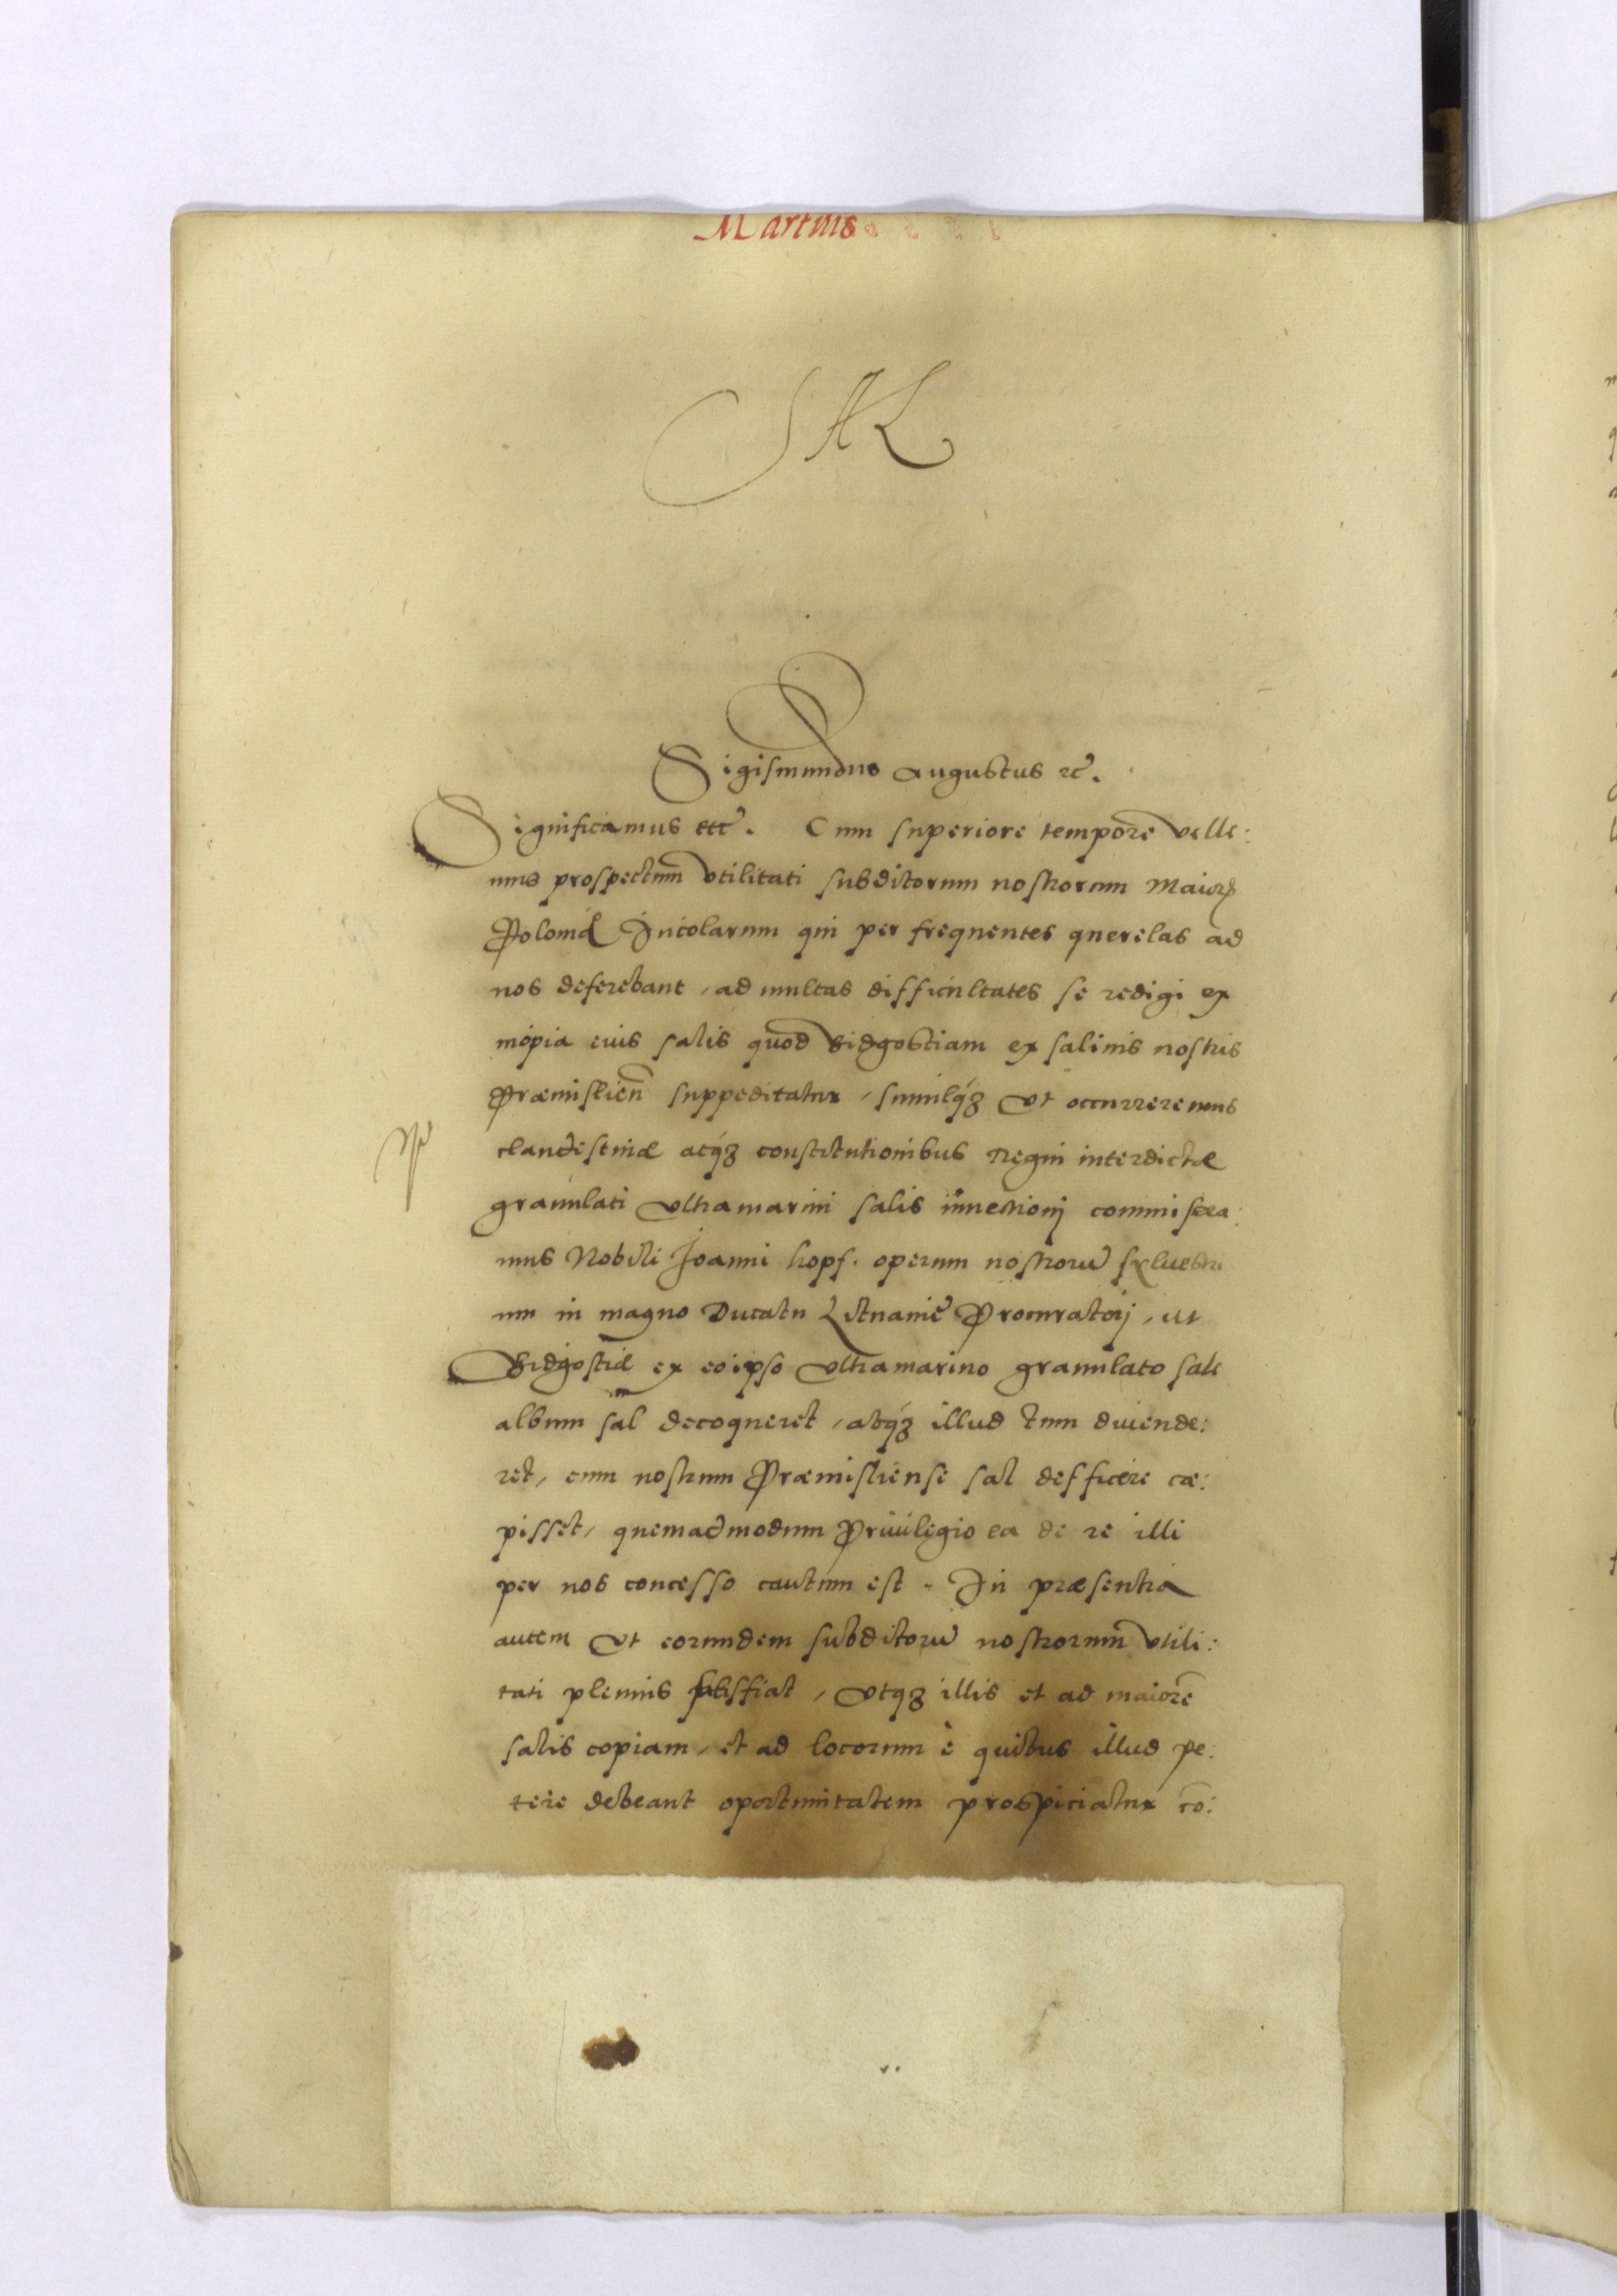 Martius
SAL
Sigismundus Augustus etc.
Significamus etc. Cum superiore tempore velle:
mus prospectum vtilitati subditorum nostrorum Maioris
Poloniæ Incolarum qui per frequentes querelas ad
nos deferebant, ad multas difficultates se redigi ex
inopia eius salis quod Bidgostiam ex salinis nostris
Præmislien suppeditatur, simulq3 vt occurreremus
clandestinæ atq3 constitutionibus Regni interdictæ
granulati vltramarini salis inuectionj commisera:
mus Nobili Joanni hops. operum nostrorū syluestri
um in magno Ducatu Lituaniæ Procuratorj, ut
Bidgostiæ ex eoipso vltramarino granulato sale
album sal decoqueret, atq3 illud tum diuende:
ret, cum nostrum Præmisliense sal defficere cæ:
pisset, quemadmodum Priuilegio ea de re illi
per nos concesso cautum est. In præsentia
autem vt eorundem subditorū nostrorum vtili:
tati plenius satisfiat, vtq3 illis et ad maiorē
salis copiam, et ad locorum è quibus illud pe:
tere debeant oportunitatem prospiciatur cō: